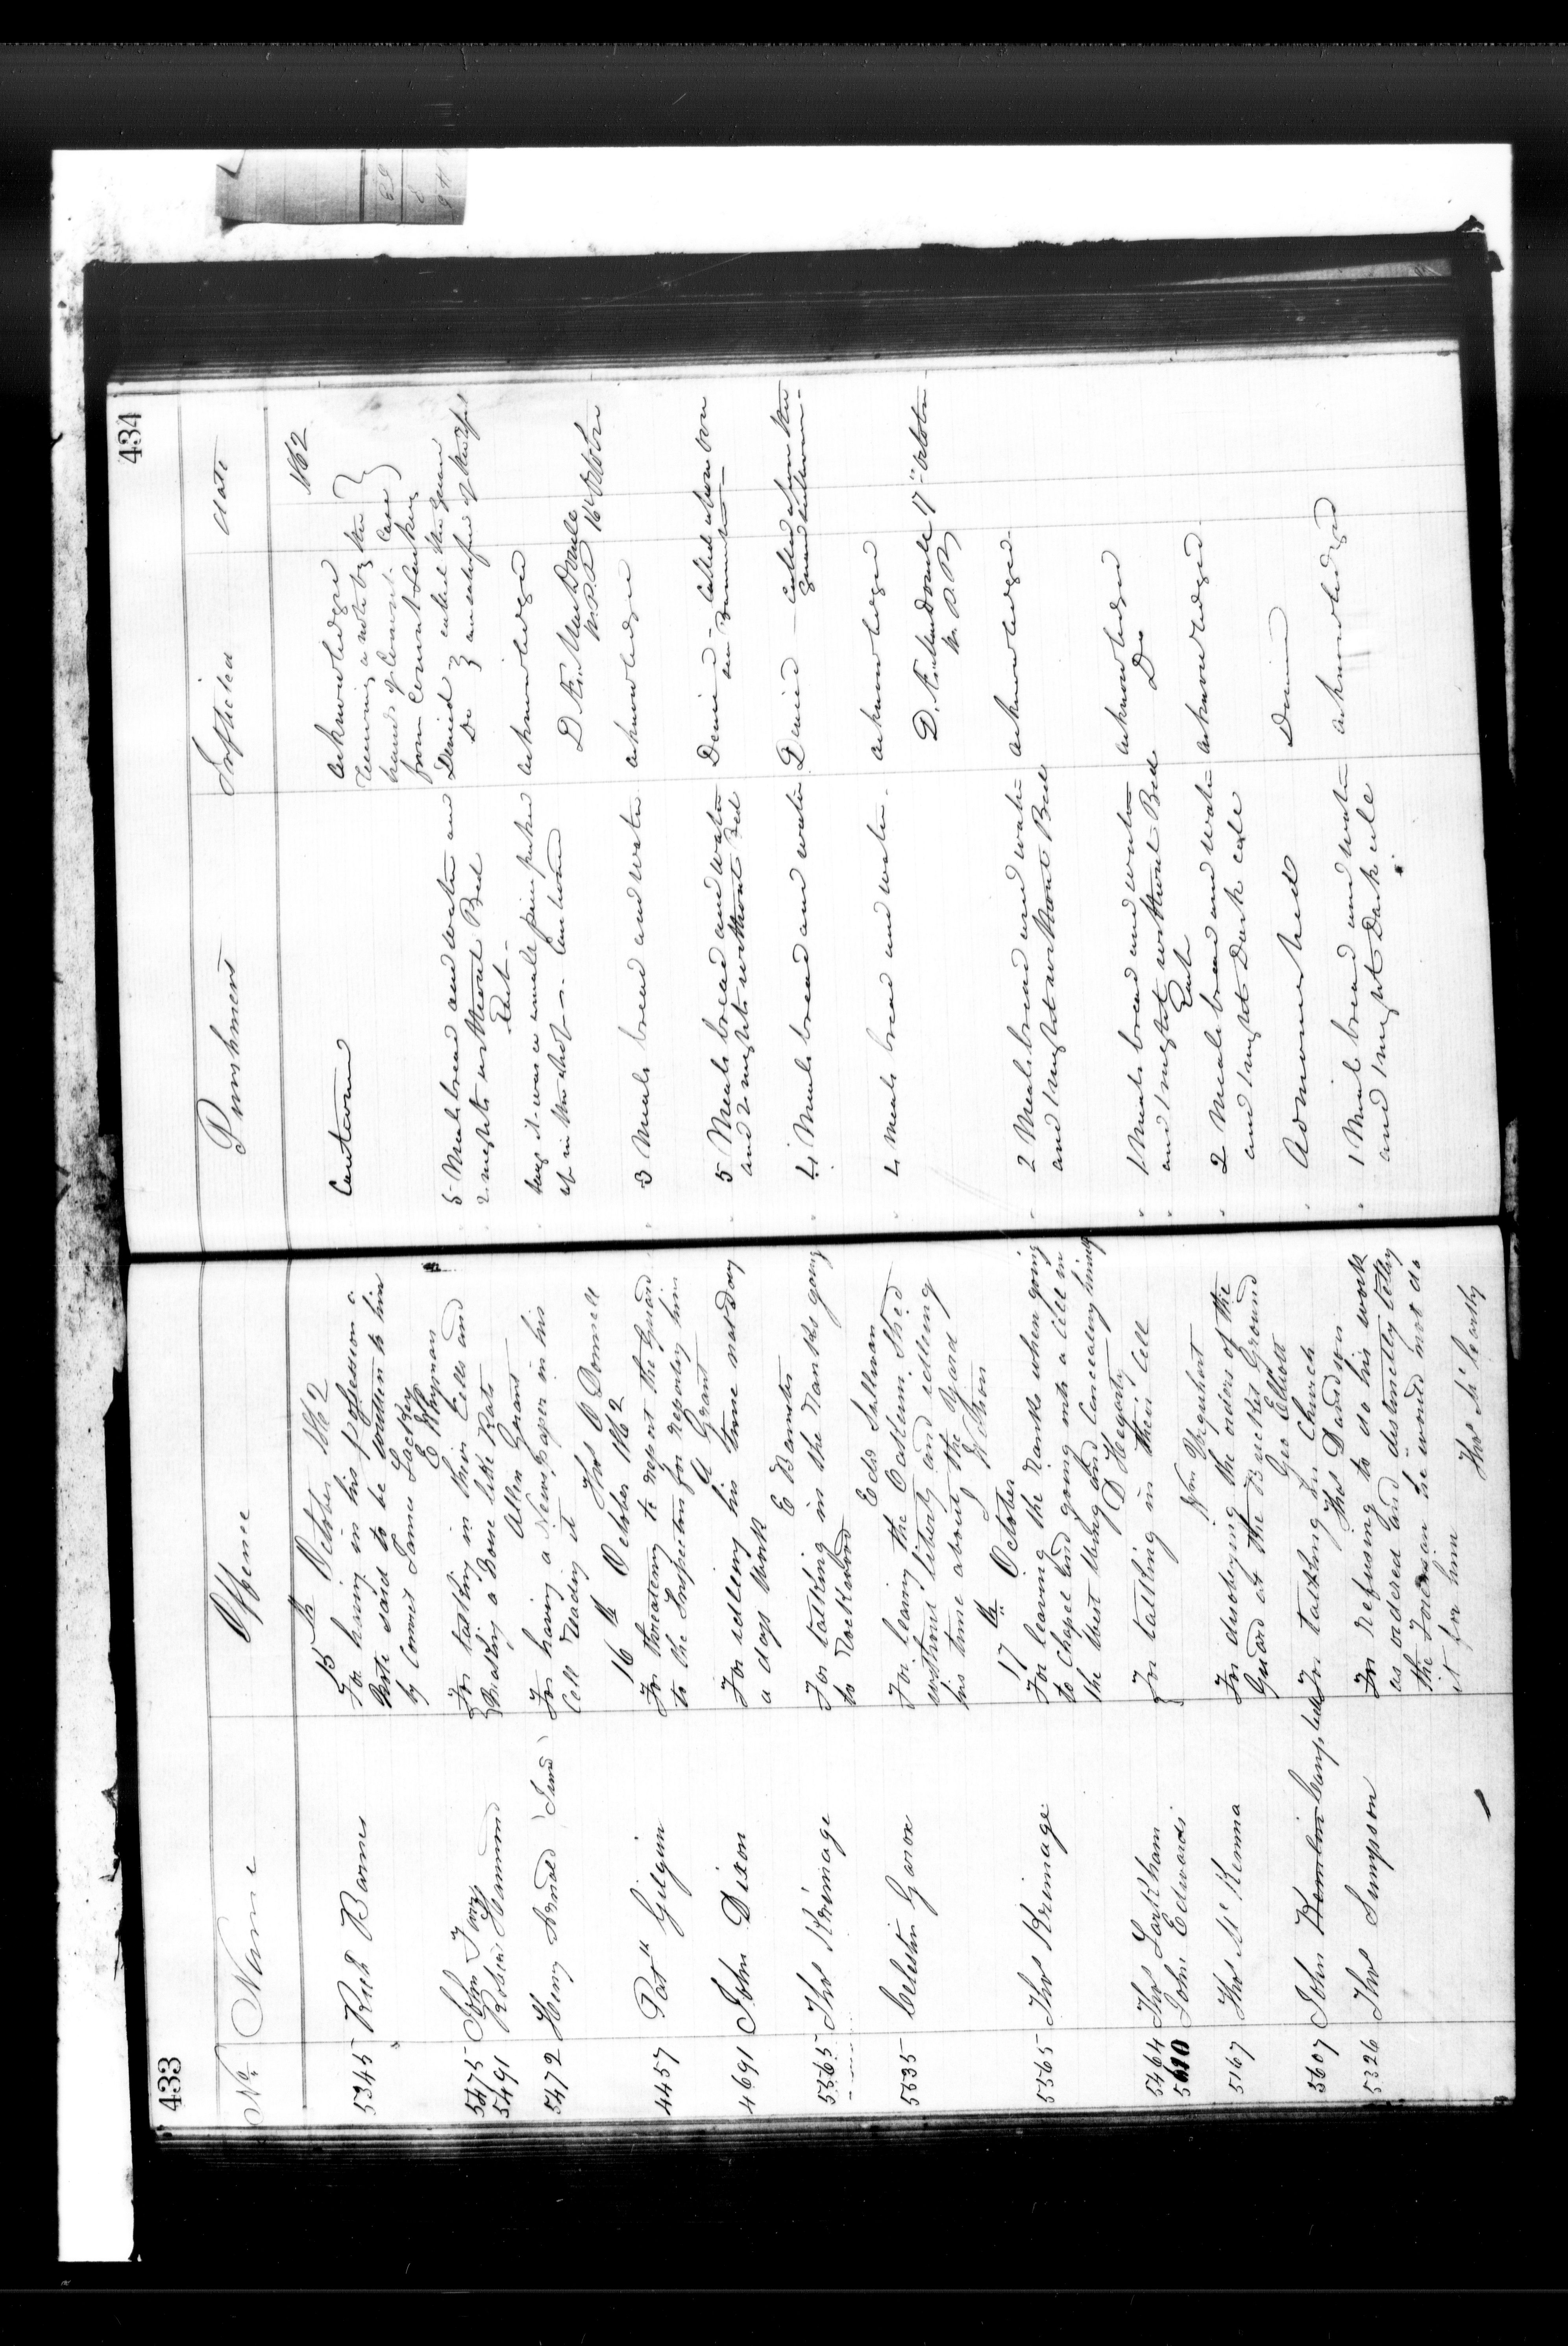 433
No. Name Offence
15th October 1862
5345 Richd Barnes For having in his possession a
Note said to be written to him
by Convict James Lackey
E Whyman
5475 John
5491 Robert Hammond For talking in their Cells and
Making a Noise like Rats
Allen Grant
5472 Henry Arnold For having a Newspaper in his
Cell reading it
Thos O Donnell
16th October 1862
4457 Patk Gilguin For threatening to report the Guard
to the Inspector for reporting him
A Grant
4691 John Dixon For idleing his time not doing
a days Work
E Bannister
5565 Thos Krimage For talking in the Ranks going
to Rockwood
Edwd Sullivan
5535 Celestin Garon For leaving the Asylum Shed
without liberty and idleing
his time about the Yard
J Wilson
17th October
5565 Thos Krimage For leaving the Ranks when going
to Chapel and going into a Cell in
the West Wing and Concealing himself
D Hegarty
5464 Thos Larkham For talking in their Cell
5610 John Edwards
Wm Urquhart
5167 Thos McKenna For disobeying the orders of the
Guard at the Bucket Ground
Geo Elliott
5607 John Campbell For talking in Church
Thos Davidson
5326 Thos Simpson For refusing to do his work
as ordered and distinctly telling
the Foreman he would not do
it for him
Thos McCarthy
434
Punishment Inflicted date
1862
Caution acknowledged
receiving a note by the
hands of Convict Case
from Convict Lackey
5 Meals bread and water and Denied called the Guard
2 nights without Bed Do
Each
acknowledged
D. Æ. MacDonell
W.P.P. 16 October
3 Meals bread and water acknowledged
5 Meals bread and water Denied
and 2 nights without Bed
4 Meals bread and water Denied
4 Meals bread and water acknowledged
D. Æ. MacDonell 17th October
W.P.P.
2 Meals bread and water acknowledged
and 1 night without Bed
1 Meals bread and water acknowledged
and 1 night without Bed Do
Each
2 Meals bread and water acknowledged
and 1 night Dark cell
Admonished Denied
1 Meal bread and water acknowledged
and 1 night Dark cell